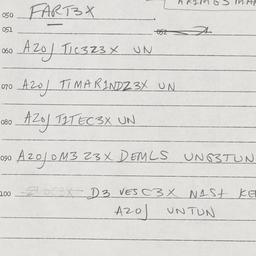 050 FART3X
051 052
060 AZOJ TIC3Z3X UN
070 AZOJ TIMARINDZ3X UN
080 AZOJ TITEC3X UN
090 AZOJOM3 Z3X DEMLS UNG3TUN
100 D3 VESC3X NIST KE
AZOJ UNTUN